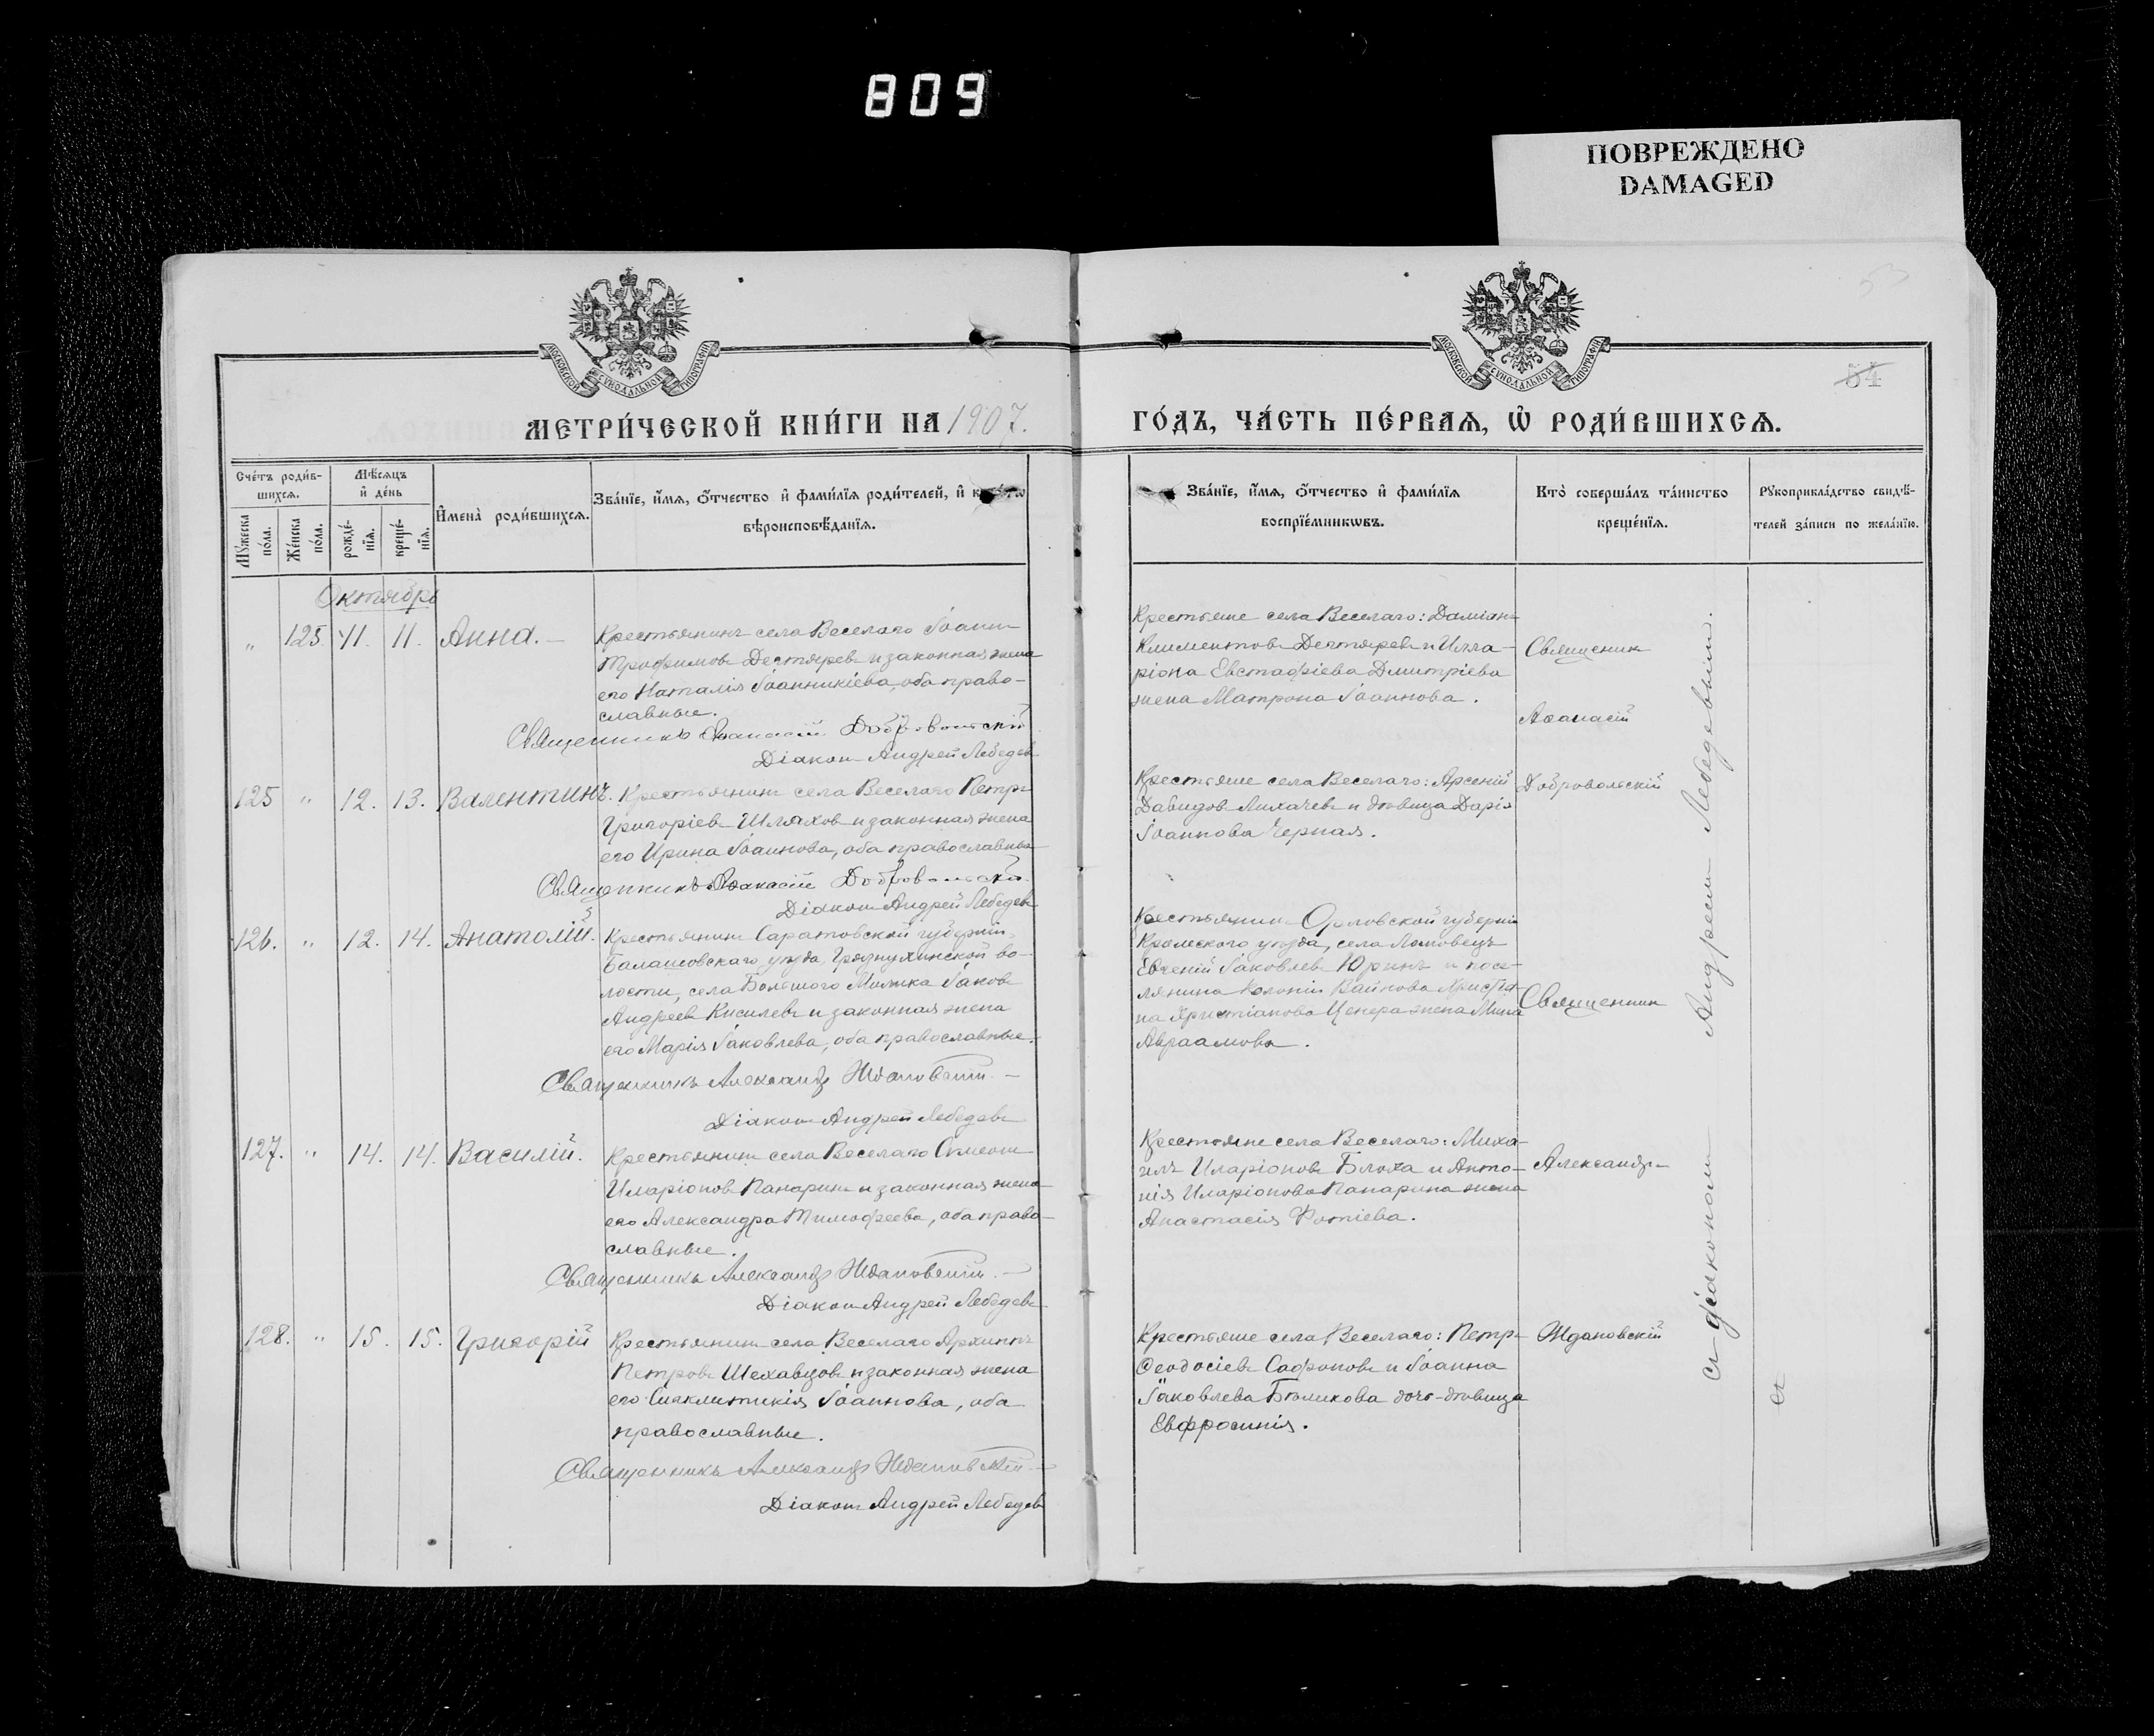 809
ПОВРЕЖДЕНО
DAMAGED
МОСКОВСКОЙ СѴНОДАЛЬНОЙ ТИПОГРАФІИ
МОСКОВСКОЙ СѴНОДАЛЬНОЙ ТИПОГРАФІИ
53
54
МЕТРИ́ЧЕСКОЙ КНИ́ГИ НА 1907.
ГО́ДЪ, ЧА́СТЬ ПЕ́РВАѦ, Ѡ҆ РОДИ́ВШИХСѦ.
Сче́тъ роди́в-
шихсѧ.
Мѣ́сѧцъ
и҆ де́нь
Мꙋ́жеска
по́ла.
Же́нска
по́ла.
рожде́-
нїѧ.
креще́-
нїѧ.
И҆мена̀ роди́вшихсѧ.
Зва́нїе, и҆́мѧ, ѻ҆́тчество и҆ фами́лїѧ роди́телей, и҆
вѣроисповѣ́данїѧ.
Зва́нїе, и҆́мѧ, ѻ҆́тчество и҆ фами́лїѧ
воспрїе́мникѡвъ.
Кто̀ соверша́лъ та́инство
креще́нїѧ.
Рꙋкоприкла́дство свидѣ́-
телей за́писи по жела́нїю.
Октябрь
" 125 11. 11. Анна. Крестьянинъ села Веселаго Іоаннъ
Трофимовъ Дегтяревъ и законная жена
его Наталія Іоанникіева, оба право-
славные.
Священникъ Аѳанасій Добровольскій
Діаконъ Андрей Лебедевъ
Крестьяне села Веселаго: Даміанъ
Климентовъ Дегтяревъ и Илла-
ріона Евстафіева Дмитріева
жена Матрона Іоаннова.
Священник
Аѳанасій
125 " 12. 13. Валентинъ. Крестьянинъ села Веселаго Петръ
Григоріевъ Шляховъ и законная жена
его Ирина Іоаннова, оба православные
Священникъ Аѳанасій Добровольскій
Діаконъ Андрей Лебедевъ
Крестьяне села Веселаго: Арсеній
Давидовъ Лихачевъ и дѣвица Дарія
Іоаннова Черная.
Добровольскій
126. " 12. 14. Анатолій. Крестьянинъ Саратовской губерніи,
Балашовскаго уѣзда, Грязнухинской во-
лости, села Большого Мелика Іаковъ
Андреевъ Киселевъ и законная жена
его Марія Іаковлева, оба православные.
Священникъ Александръ Ждановскій
Діаконъ Андрей Лебедевъ
Крестьянинъ Орловской губерніи
Кромскаго уѣзда, села Ломовецъ
Евгеній Іаковлевъ Юринъ и посе-
лянина колоніи Вайнова Христіа-
на Христіанова Ценера жена Мина
Авраамова.
Священник
127. " 14. 14. Василій. Крестьянинъ села Веселаго Симеонъ
Иларіоновъ Панаринъ и законная жена
его Александра Тимофеева, оба право-
славные.
Священникъ Александръ Ждановскій
Діаконъ Андрей Лебедевъ
Крестьяне села Веселаго: Миха-
илъ Иларіоновъ Блоха и Анто-
нія Иларіонова Панарина жена
Анастасія Фотіева.
Александръ
128. " 15. 15. Григорій Крестьянинъ села Веселаго Архиппъ
Петровъ Шехавцовъ и законная жена
его Синклитикія Іоаннова, оба
православные.
Священникъ Александръ Ждановскій
Діаконъ Андрей Лебедевъ
Крестьяне села Веселаго: Петръ
Ѳеодосіевъ Сафоновъ и Іоанна
Іаковлева Бѣликова дочь-дѣвица
Евфросинія.
Ждановскій
съ діакономъ Андреемъ Лебедевымъ.